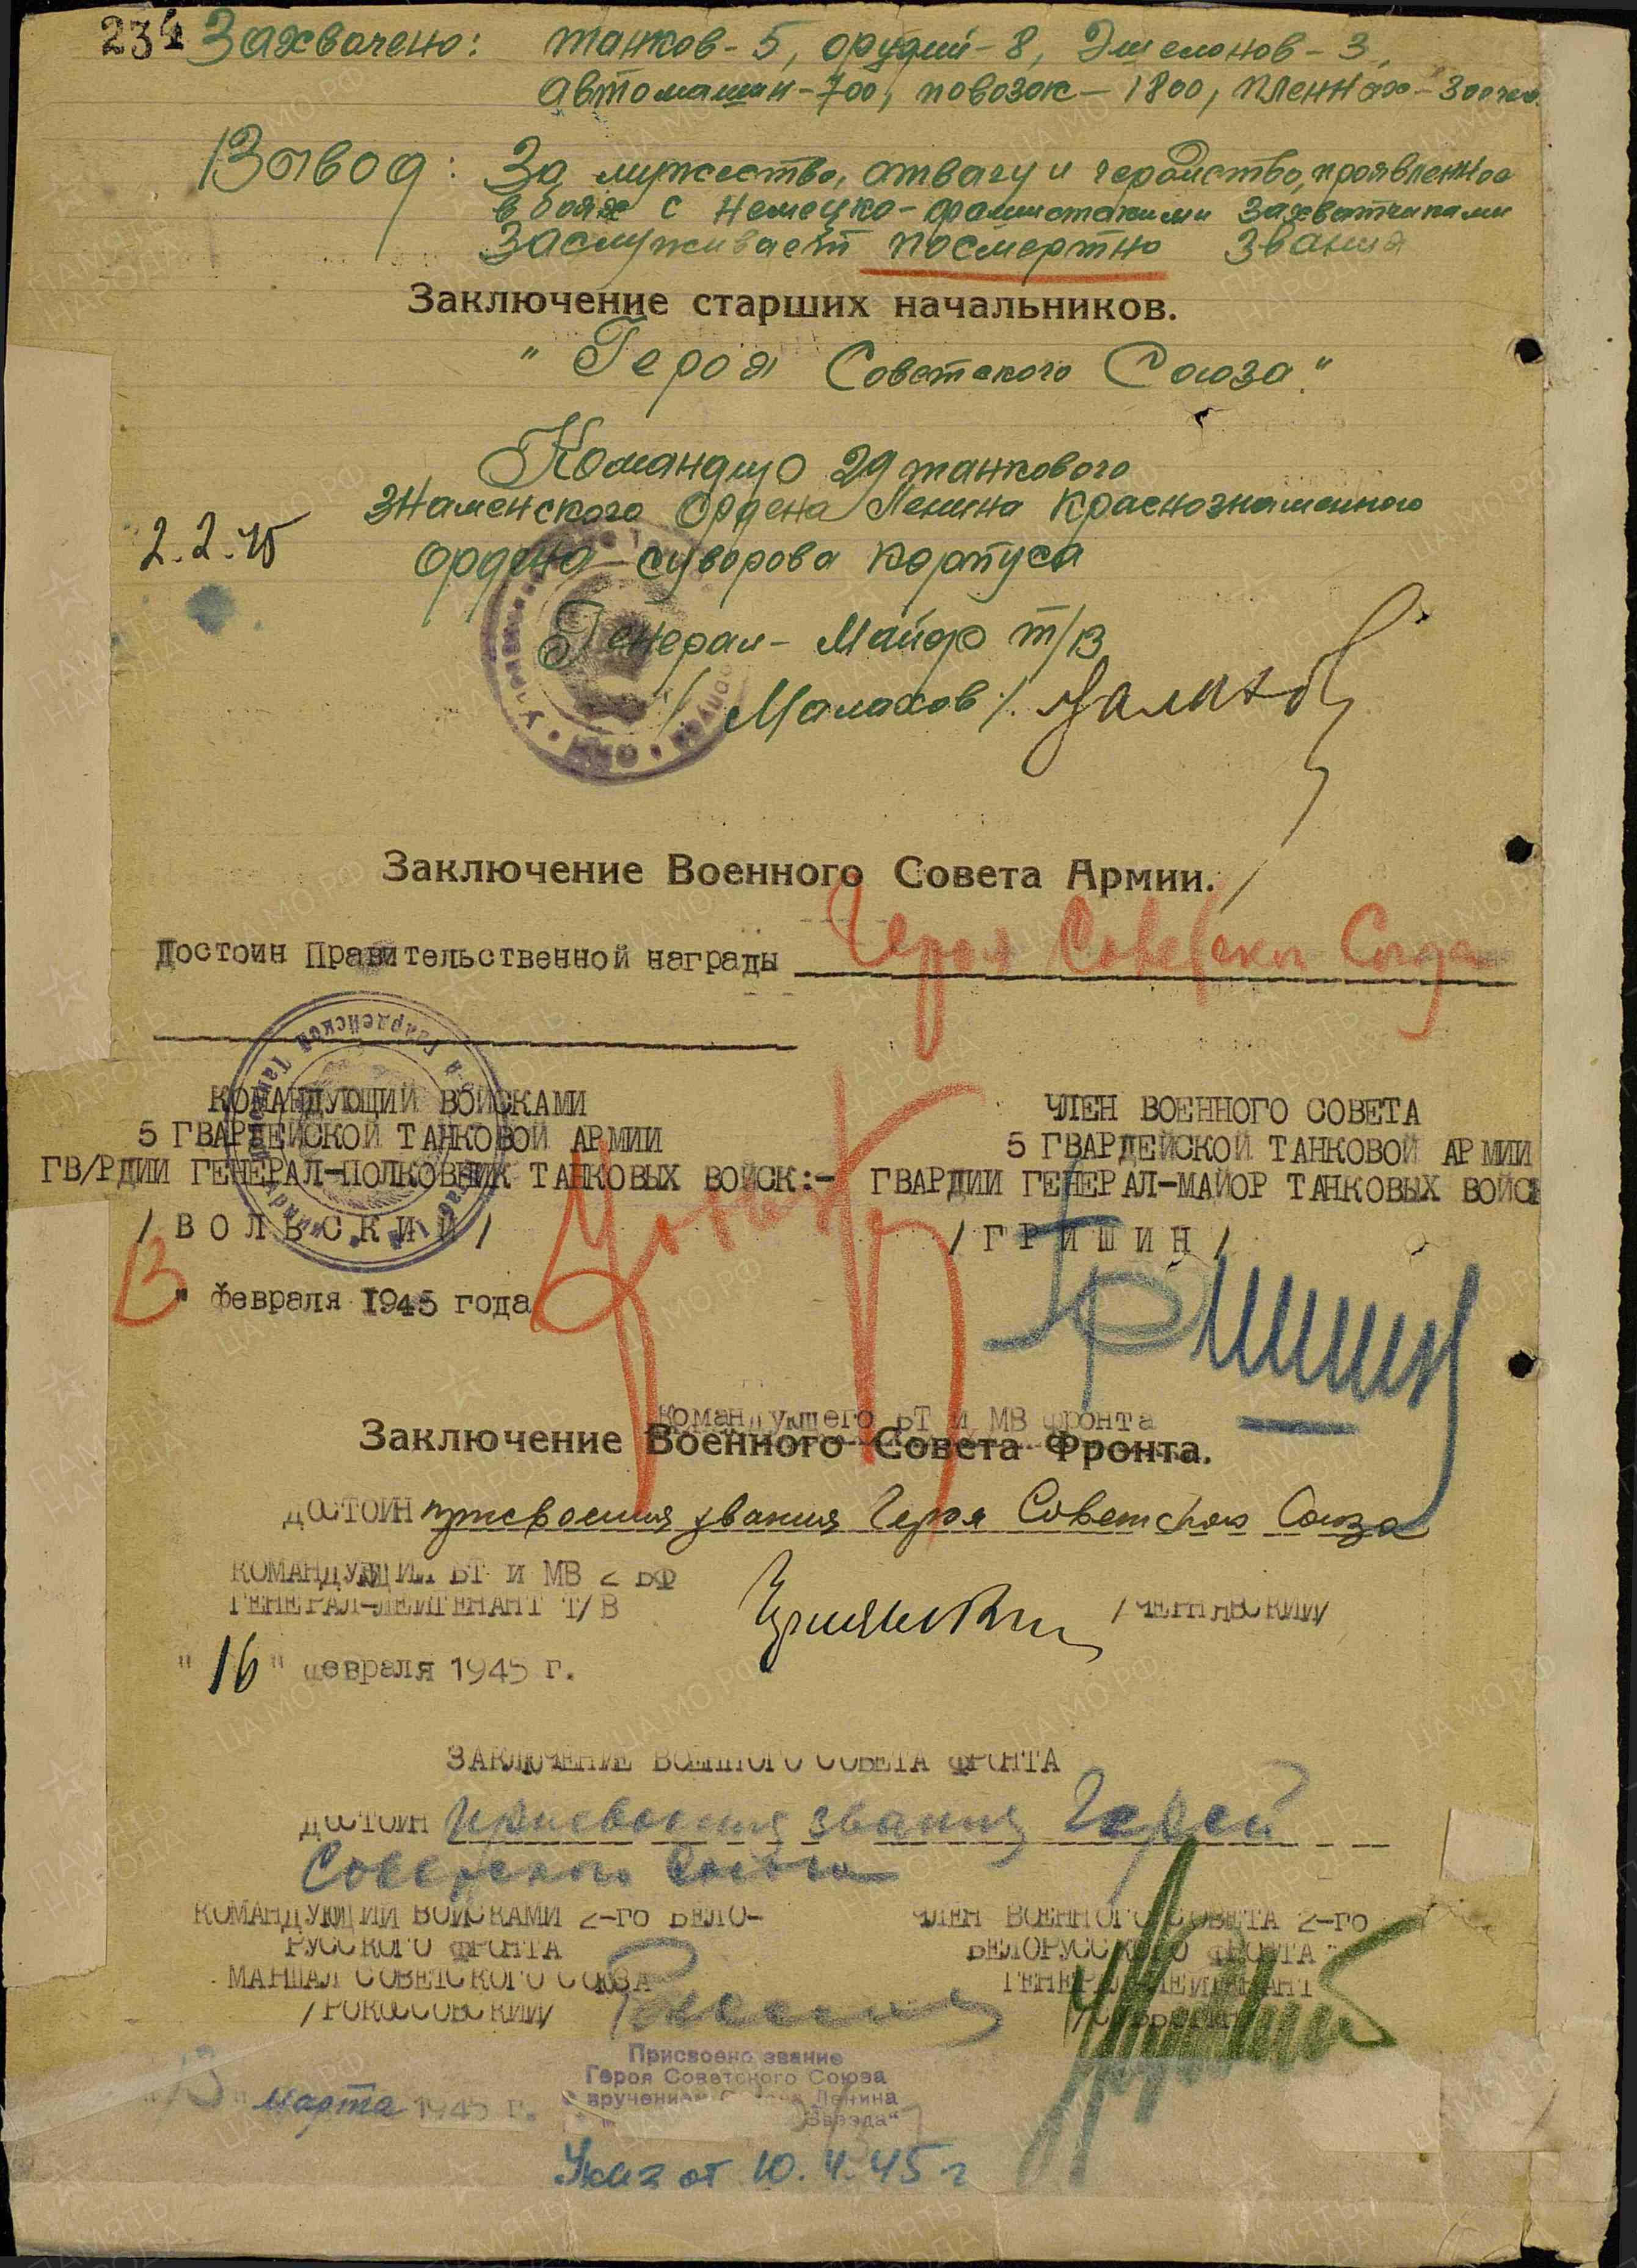 234 Захвачено: танков - 5, орудий - 8, Эшелонов - 3,
автомашин - 700, повозок - 1800, пленных - 300 чел.
Вывод: За мужество, отвагу и геройство, проявленное
в боях с немецко-фашистскими захватчиками
заслуживает посмертно звания
Заключение старших начальников.
"Героя Советского Союза."
Командир 29 танкового
Знаменского Ордена Ленина Краснознаменного
2.2.45
ордена Суворова корпуса
Генерал-Майор т/в
/Малахов/.
Заключение Военного Совета Армии.
Достоин Правительственной награды Героя Советск Союза
КОМАНДУЮЩИЙ ВОЙСКАМИ
5 ГВАРДЕЙСКОЙ ТАНКОВОЙ АРМИИ
ГВ/РДИИ ГЕНЕРАЛ-ПОЛКОВНИК ТАНКОВЫХ ВОЙСК:-
/ВОЛЬСКИЙ/
ЧЛЕН ВОЕННОГО СОВЕТА
5 ГВАРДЕЙСКОЙ ТАНКОВОЙ АРМИИ
ГВАРДИИ ГЕНЕРАЛ-МАЙОР ТАНКОВЫХ ВОЙС
/ГРИШИН/
13" февраля 1945 года
Гришин
Командующего БТ и МВ фронта
Заключение Военного Совета Фронта.
ДОСТОИН присвоения звания Героя Советского Союза
КОМАНДУЮЩИЙ БТ И МВ 2 БФ
ГЕНЕРАЛ-ЛЕЙТЕНАНТ Т/В
/ЧЕРНЯВСКИЙ/
"16" февраля 1945 г.
ЗАКЛЮЧЕНИЕ ВОЕННОГО СОВЕТА ФРОНТА
ДОСТОИН присвоения звания Герой
Советского Союза
КОМАНДУЮЩИЙ ВОЙСКАМИ 2-ГО БЕЛО-
РУССКОГО ФРОНТА
МАРШАЛ СОВЕТСКОГО СОЮЗА
/РОКОССОВСКИЙ/
ЧЛЕН ВОЕННОГО СОВЕТА 2-ГО
БЕЛОРУССКОГО ФРОНТА
ГЕНЕРАЛ-ЛЕЙТЕНАНТ
Присвоено звание
Героя Советского Союза
с вручением Ленина
Звезда"
"13" марта 1945 г.
Указ от 10.4.45 г